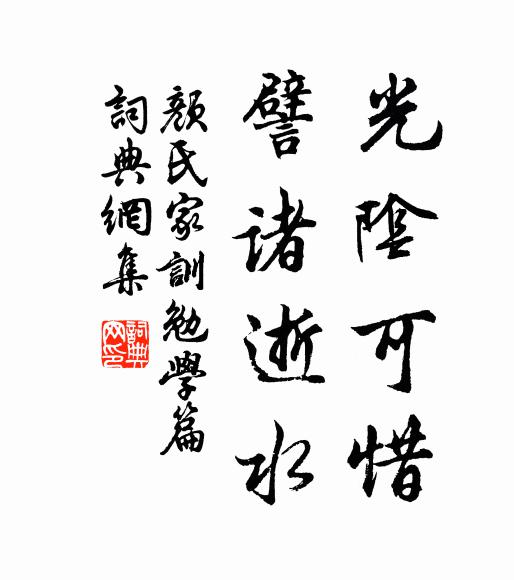 光陰可惜
譬諸逝水
顏氏家訓勉學篇
詞典網集
詞典網印